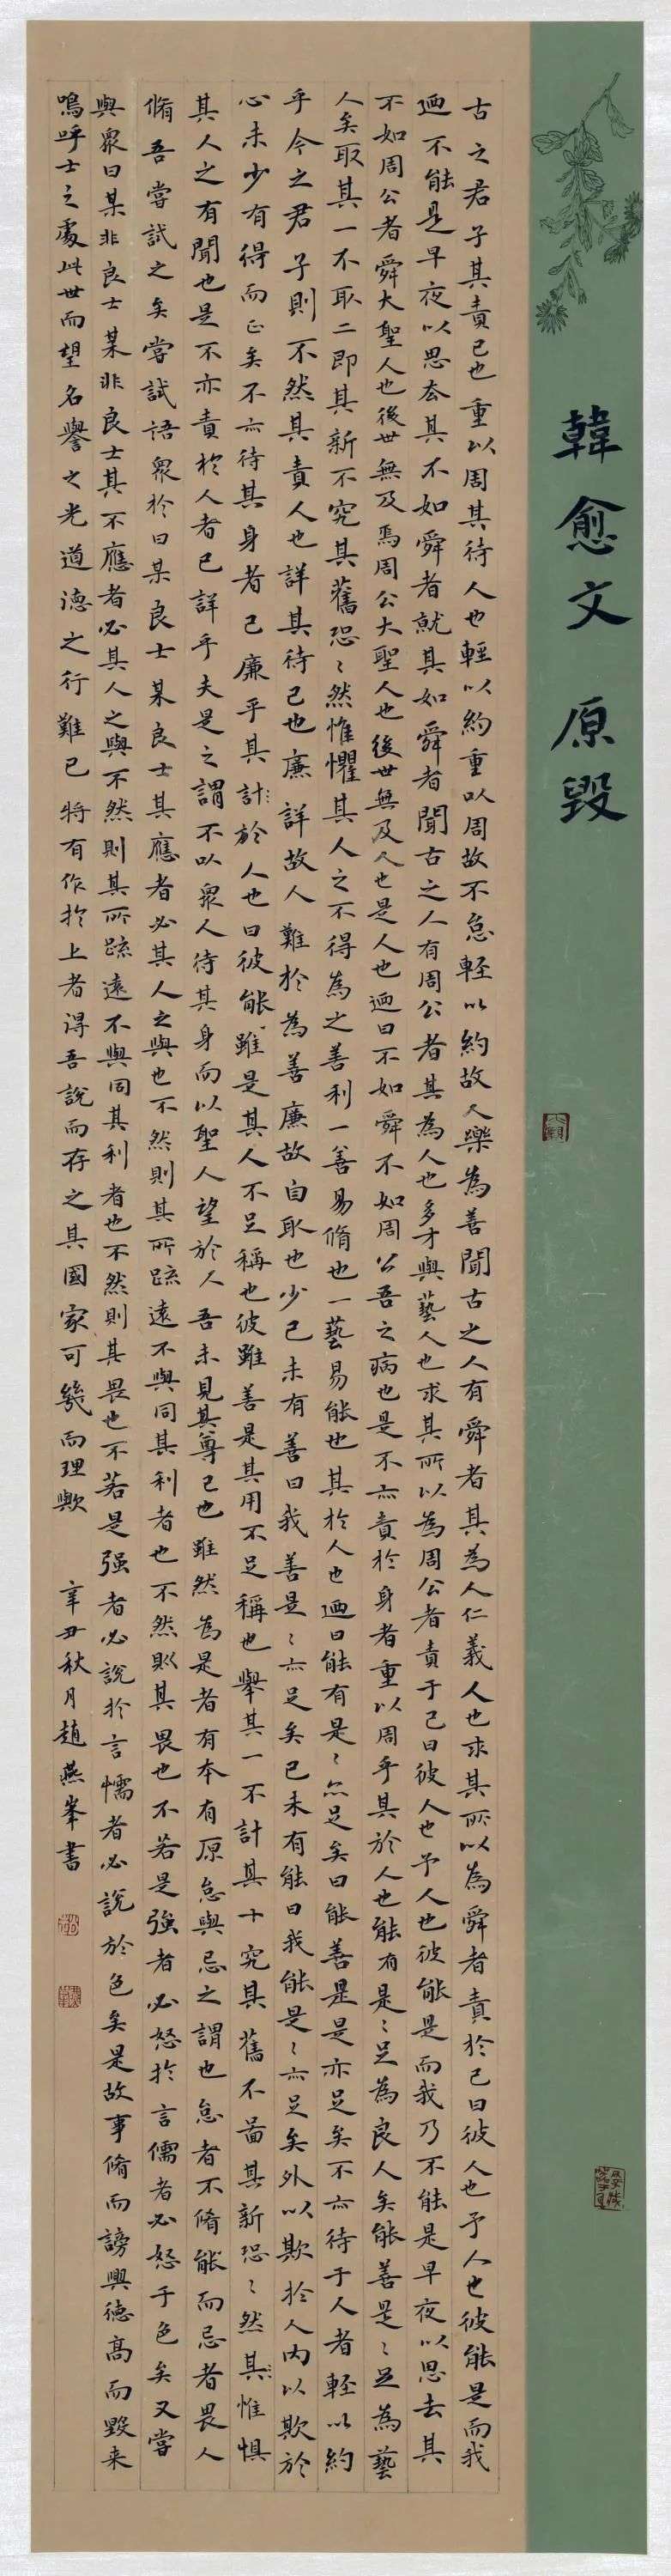 韓愈文 原毀
古之君子其責己也重以周其待人也輕以約重以周故不怠輕以約故人樂為善聞古之人有舜者其為人仁義人也求其所以為舜者責於己曰彼人也予人也彼能是而我
迺不能是早夜以思去其不如舜者就其如舜者聞古之人有周公者其為人也多才與藝人也求其所以為周公者責于己曰彼人也予人也彼能是而我乃不能是早夜以思去其
不如周公者舜大聖人也後世無及焉周公大聖人也後世無及人也是人也迺曰不如舜不如周公吾之病也是不亦責於身者重以周乎其於人也能有是〻足為良人矣能善是〻足為藝
人矣取其一不取二即其新不究其舊恐〻然惟懼其人之不得為之善利一善易脩也一藝易能也其於人也迺曰能有是〻亦足矣曰能善是是亦足矣不亦待于人者輕以約
乎今之君子則不然其責人也詳其待己也廉詳故人難於為善廉故自取也少己未有善曰我善是〻亦足矣己未有能曰我能是〻亦足矣外以欺於人內以欺於
心未少有得而止矣不亦待其身者己廉乎其計於人也曰彼能雖是其人不足稱也彼雖善是其用不足稱也舉其一不計其十究其舊不圖其新恐〻然其惟惧
其人之有聞也是不亦責於人者已詳乎夫是之謂不以衆人待其身而以聖人望於人吾未見其尊己也雖然為是者有本有原怠與忌之謂也怠者不脩能而忌者畏人
脩吾嘗試之矣嘗試語衆於曰某良士某良士其應者必其人之與也不然則其所疏遠不與同其利者也不然則其畏也不若是強者必怒於言儒者必怒于色矣又嘗
與衆曰某非良士某非良士其不應者必其人之與不然則其所疏遠不與同其利者也不然則其畏也不若是强者必説於言懦者必説於色矣是故事脩而謗興德高而毀来
嗚呼士之處此世而望名譽之光道德之行難已將有作於上者得吾說而存之其國家可幾而理歟 辛丑秋月趙燕峯書